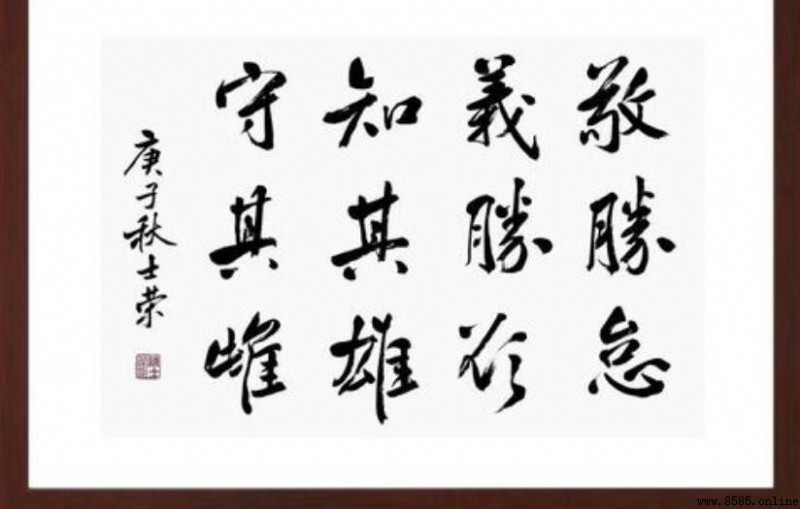 敬勝怠
義勝欲
知其雄
守其雌
庚子秋士荣
www.8585.online